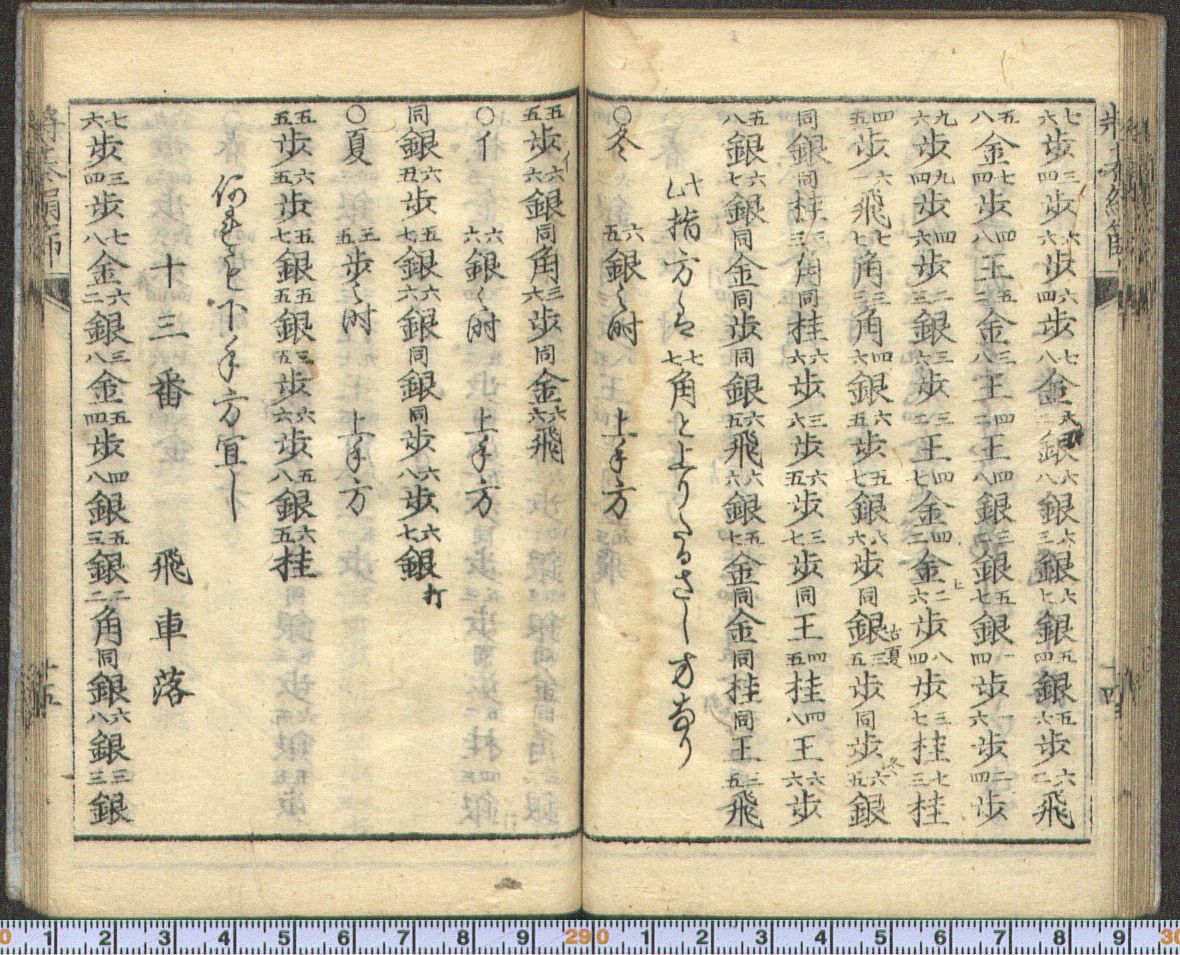 七六歩三四歩六六歩六四歩七八金六二銀六八銀六三銀六七銀五四銀五六歩六二飛
五八金七四歩四八王五二金三八王四二王四八銀三二銀五七銀一四歩一六歩二四歩
九六歩九四歩四六歩二三銀三六歩三二王四七金四二金上二六歩八四歩三七桂七三桂
四五歩六一飛七七角三三角四六銀六五歩五七銀八六歩同銀三五歩同歩六五銀
同銀同桂三三角同桂六六歩三六歩六五歩三七歩同王四五桂四八王六六歩
五八銀六七銀同金同歩同銀六五飛六六銀五七金同金同桂同王三五飛
此指方ハ七七角と上りたるさし方あり
○冬 六五銀之時 上手方
五五歩イ六六銀同角三六歩同金六六飛
○イ 六六銀之時 上手方
同銀六五歩五七銀六六銀同銀同歩六八歩六七銀打
○夏 三五歩之時 上手方
五五歩六五歩五七銀五五銀三五歩六六歩五八銀六五桂
何れも下手方宜し
十三番 飛車落
七六歩三四歩七八金六二銀三八金五四歩四八銀五三銀二二角同銀六八銀三三銀